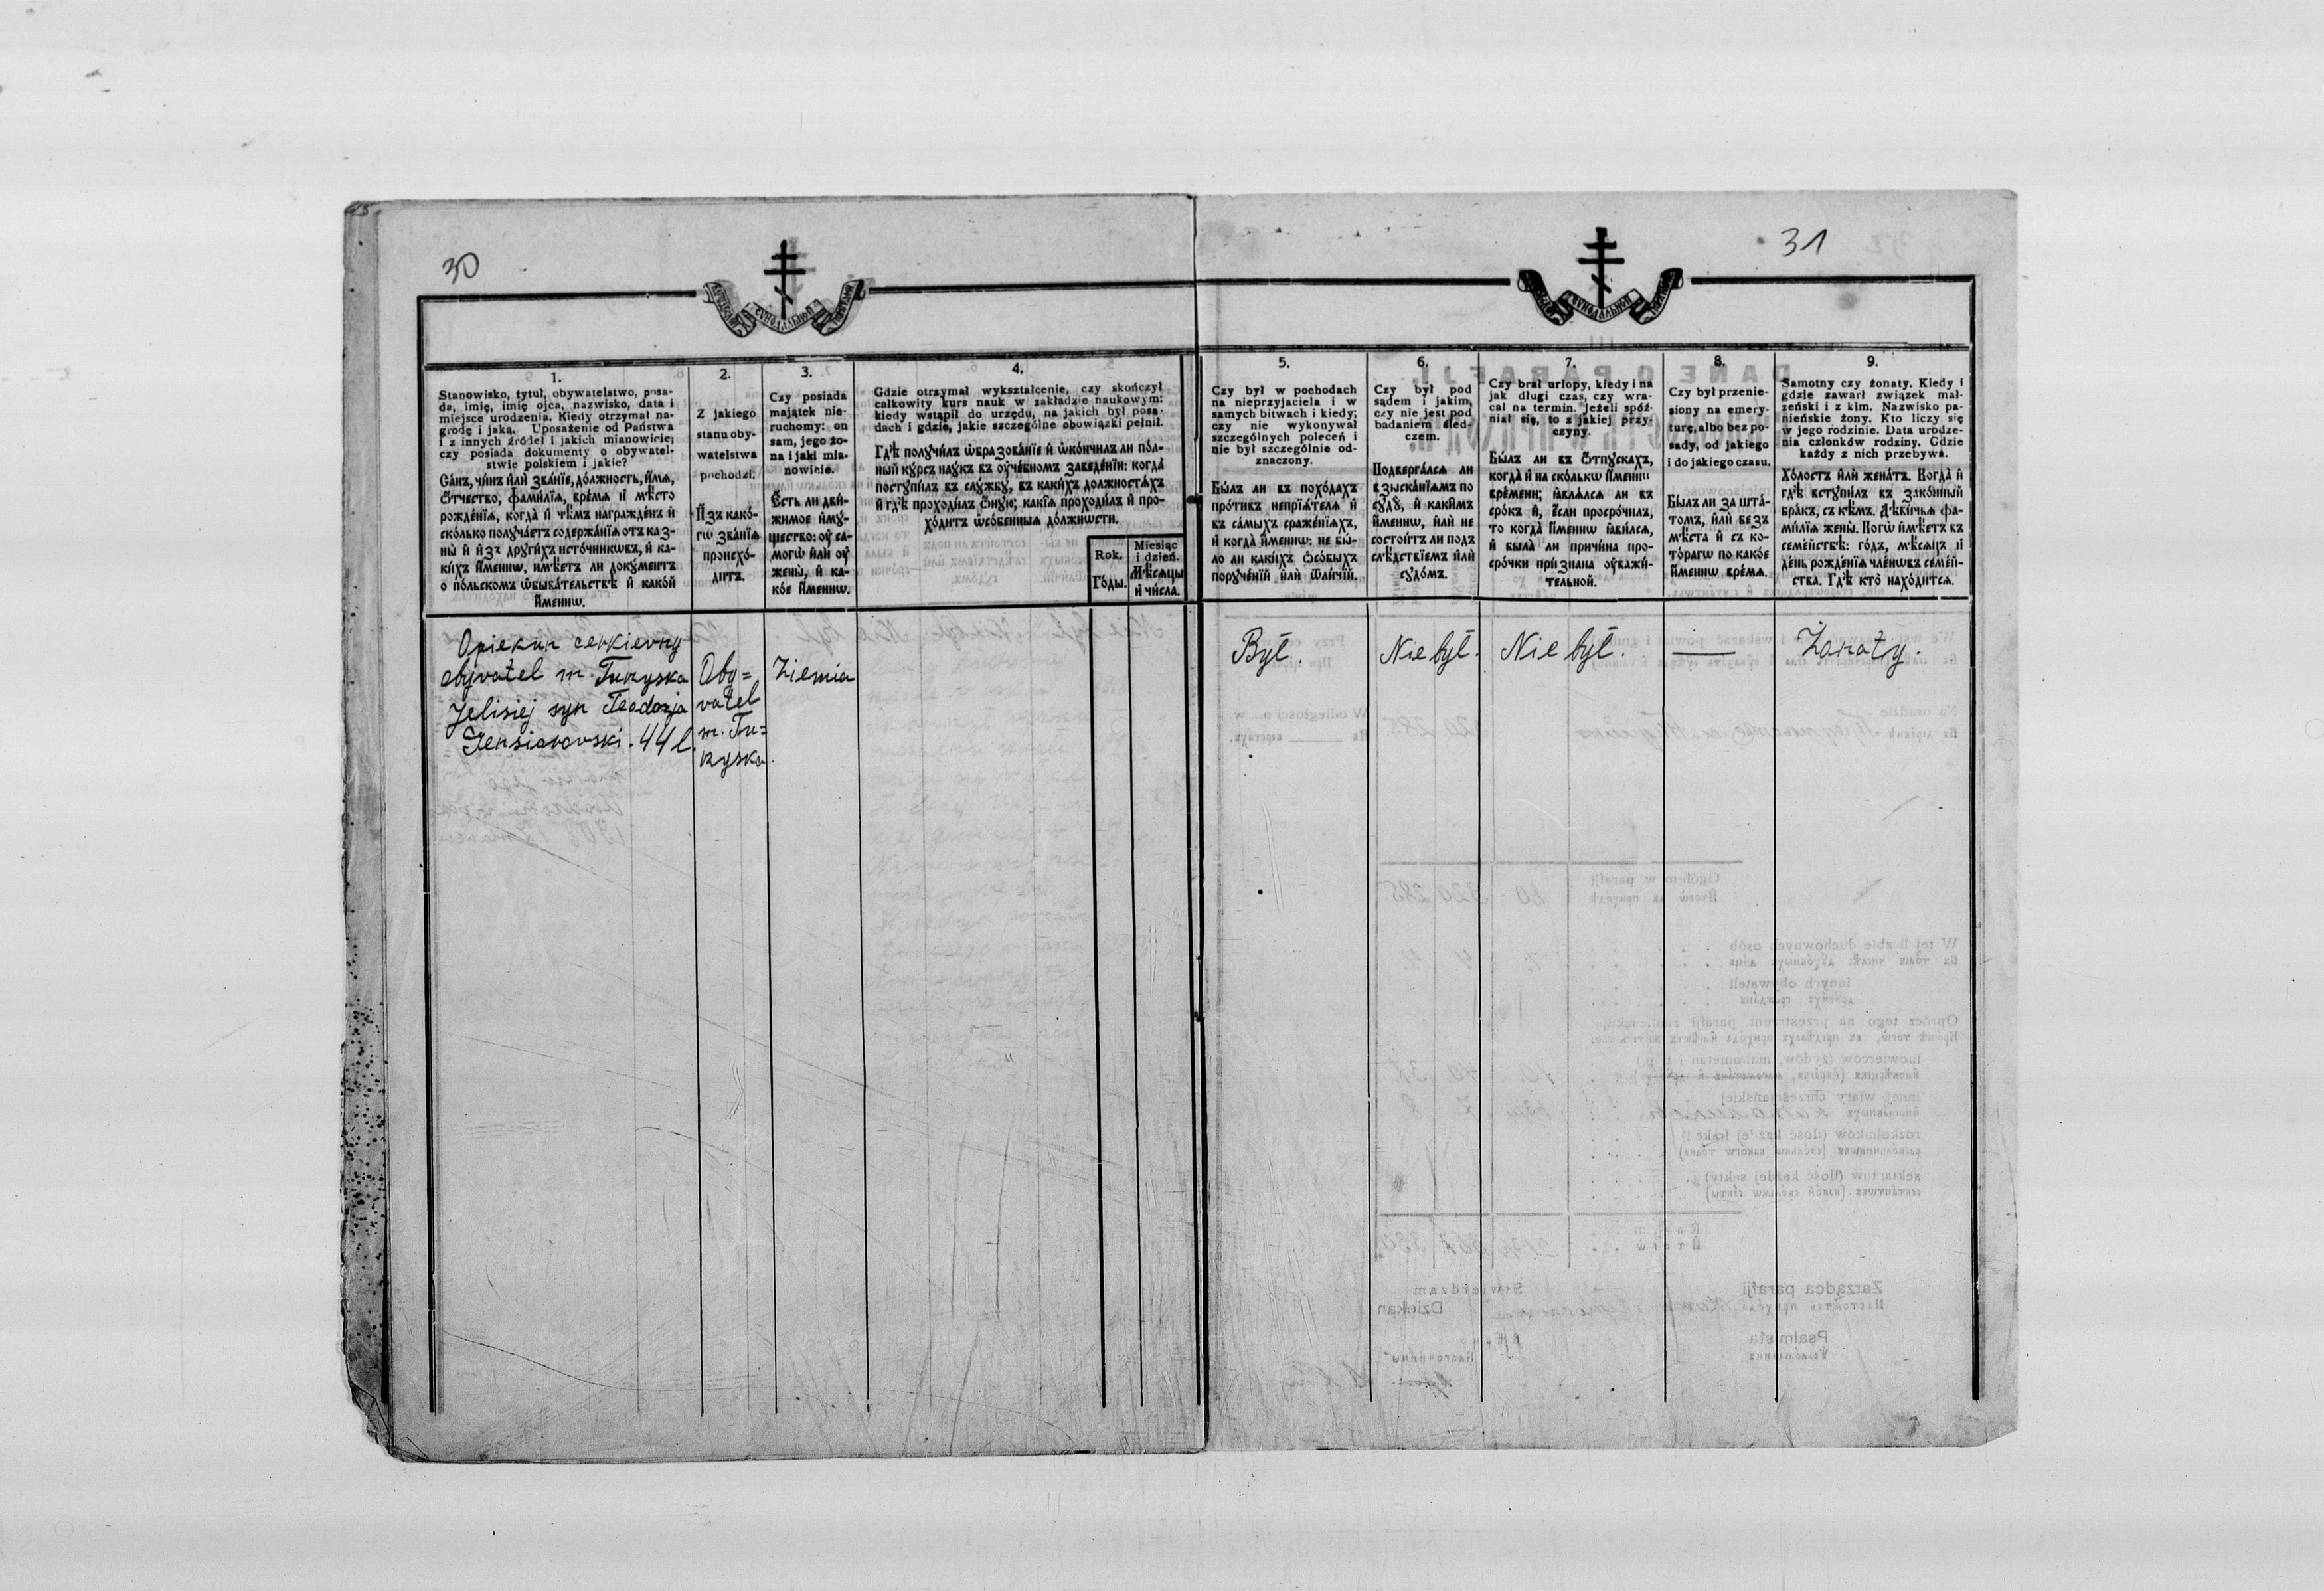 30
31
1.
Stanowisko, tytuł, obywatelstwo, posa-
da, imię, imię ojca, nazwisko, data i
miejsce urodzenia. Kiedy otrzymał na-
grodę i jaką. Uposażenie od Państwa
i z innych źródeł i jakich mianowicie;
czy posiada dokumenty o obywatel-
stwie polskiem i jakie?
Са́нъ, чи́нъ и҆лѝ зва́нїе, до́лжность, и҆́мѧ,
ѻ҆́тчество, фами́лїѧ, вре́мѧ и҆ мѣ́сто
рожде́нїѧ, когда̀ и҆ чѣ́мъ награжде́нъ и҆
ско́лько получа́етъ содержа́нїѧ отъ каз-
ны̀ и҆ и҆зъ други́хъ исто́чникѡвъ, и҆ ка-
ки́хъ и҆́меннѡ, имѣ́етъ ли докуме́нтъ
о по́льскомъ ѡ҆быва́тельствѣ и҆ како́й
и҆́меннѡ.
2.
Z jakiego
stanu oby-
watelstwa
pochodzi.
И҆зъ како́-
гѡ зва́нїѧ
происхо́-
дитъ.
3.
Czy posiada
majątek nie-
ruchomy: on
sam, jego żo-
na i jaki mia-
nowicie.
Е҆́сть ли дви́-
жимое и҆мꙋ́-
щество: оу҆ са-
могѡ̀ и҆лѝ оу҆
жены̀, и҆ ка-
ко́е и҆́меннѡ.
4.
Gdzie otrzymał wykształcenie, czy skończył
całkowity kurs nauk w zakładzie naukowym:
kiedy wstąpił do urzędu, na jakich był posa-
dach i gdzie, jakie szczególne obowiązki pełnił.
Гдѣ̀ получи́лъ ѡ҆бразова́нїе и҆ ѡ҆ко́нчилъ ли по́л-
ный ку́рсъ нау́къ въ оу҆че́бномъ заведе́нїи: когда̀
поступи́лъ въ слу́жбу, въ каки́хъ должностѧ́хъ
и҆ гдѣ̀ проходи́лъ ѻ҆́ную; какі́ѧ проходи́лъ и҆ про-
хо́дитъ ѡ҆со́бенныѧ до́лжнѡсти.
Rok.
Го́ды.
Miesiąc
i dzień.
Мѣ́сѧцы
и҆ чи́сла.
5.
Czy był w pochodach
na nieprzyjaciela i w
samych bitwach i kiedy;
czy nie wykonywał
szczególnych poleceń i
nie był szczególnie od-
znaczony.
Бы́лъ ли въ похо́дахъ
про́тивъ непрїѧ́телѧ и҆
въ са́мыхъ сраже́нїѧхъ,
и҆ когда̀ и҆́меннѡ: не бы́-
ло ли каки́хъ ѻ҆со́быхъ
поруче́нїй и҆лѝ ѿли́чїй.
6.
Czy był pod
sądem i jakim,
czy nie jest pod
badaniem śled-
czem.
Подверга́лсѧ ли
взыска́нїѧмъ по
суду̀, и҆ каки́мъ
и҆́меннѡ, и҆лѝ не
состои́тъ ли подъ
слѣ́дствїемъ и҆лѝ
судо́мъ.
7.
Czy brał urlopy, kiedy i na
jak długi czas, czy wra-
cał na termin. Jeżeli spóź-
niał się, to z jakiej przy-
czyny.
Бы́лъ ли въ ѻ҆́тпускахъ,
когда̀ и҆ на ско́лькѡ и҆́меннѡ
вре́мени; ꙗ҆влѧ́лсѧ ли въ
сро́къ и҆, е҆́сли просро́чилъ,
то когда̀ и҆́меннѡ ꙗ҆ви́лсѧ,
и҆ была̀ ли причи́на про-
сро́чки при́знана оу҆важи́-
тельной.
8.
Czy był przenie-
siony na emery-
turę, albo bez po-
sady, od jakiego
i do jakiego czasu.
Бы́лъ ли за шта́-
томъ, и҆лѝ безъ
мѣ́ста и҆ съ ко-
то́рагѡ по како́е
и҆́меннѡ вре́мѧ.
9.
Samotny czy żonaty. Kiedy i
gdzie zawarł związek mał-
żeński i z kim. Nazwisko pa-
nieńskie żony. Kto liczy się
w jego rodzinie. Data urodze-
nia członków rodziny. Gdzie
każdy z nich przebywa.
Хо́лостъ и҆лѝ жена́тъ. Когда̀ и҆
гдѣ̀ вступи́лъ въ зако́нный
бра́къ, съ кѣ́мъ. Дѣви́чьѧ фа-
ми́лїѧ жены̀. Когѡ̀ и҆мѣ́етъ въ
семе́йствѣ: го́дъ, мѣ́сѧцъ и҆
де́нь рожде́нїѧ чле́нѡвъ семе́й-
ства. Гдѣ̀ кто̀ нахо́дитсѧ.
Opiekun cerkiewny
obywatel m. Turzyska
Jelisiej syn Teodozja
44 l.
Oby=
watel
m. Tu=
rzyska.
Ziemia
Był.
Nie był.
Nie był.
—
Żonaty.